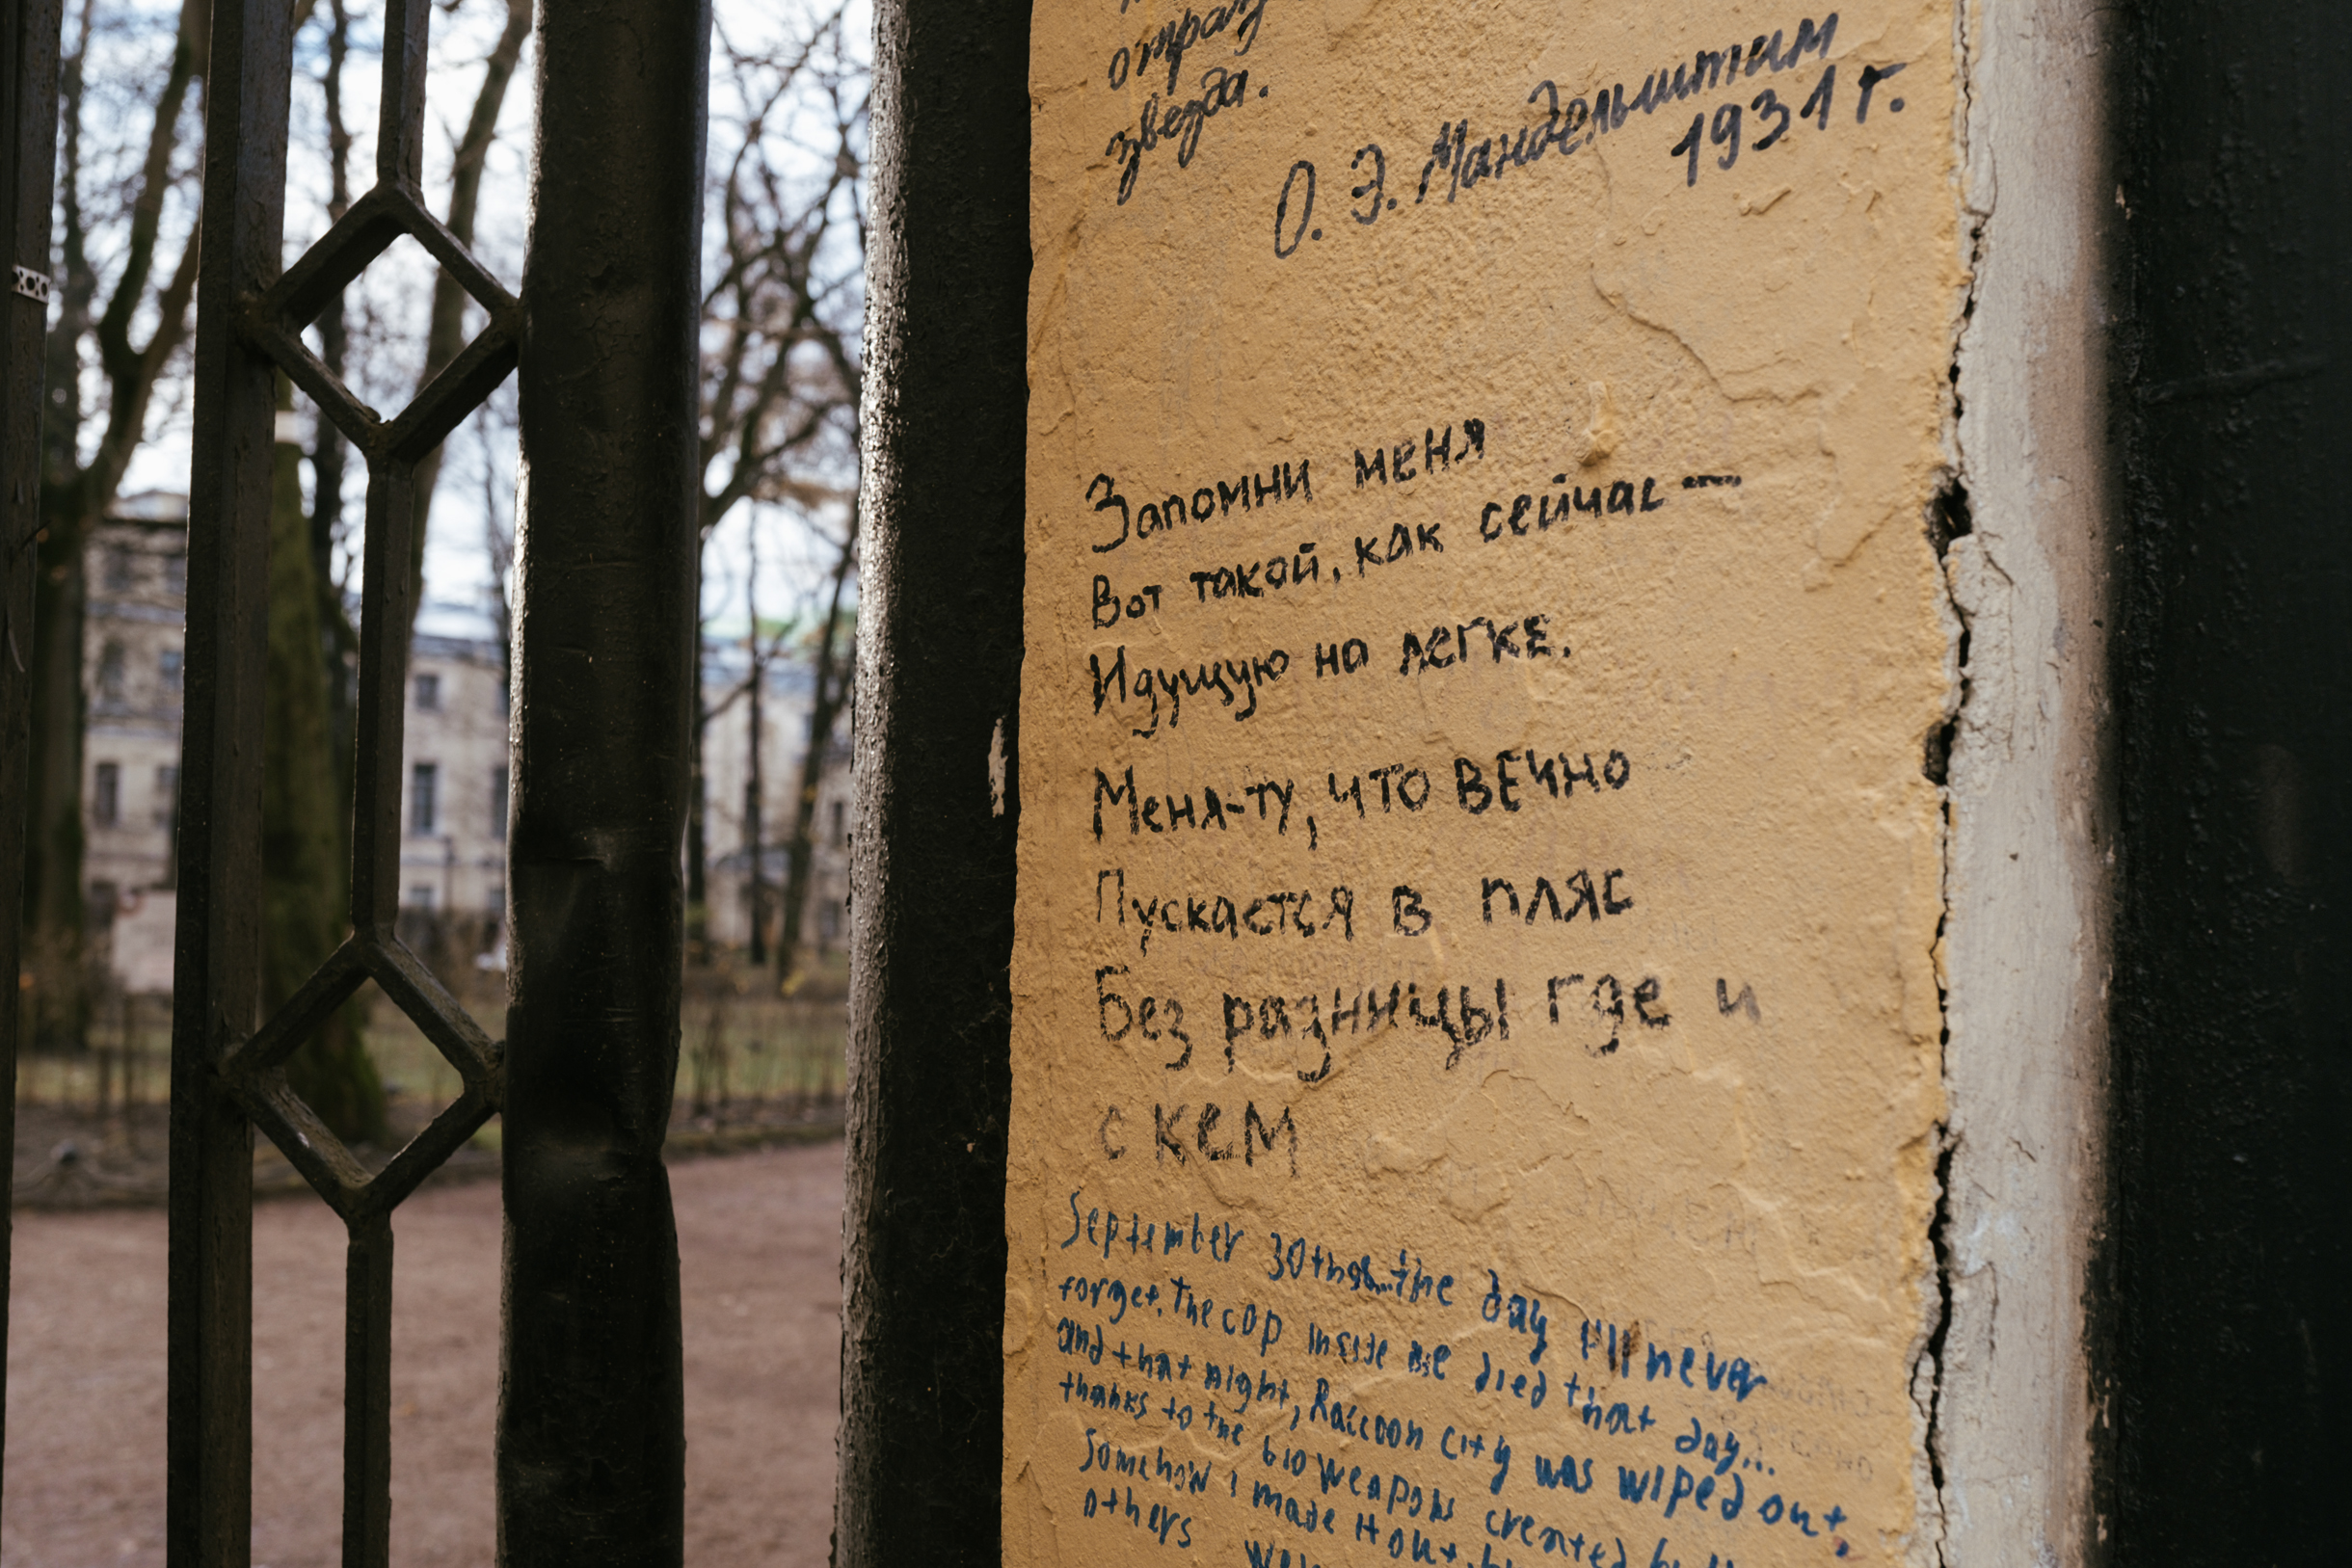 звезда.
О. Э. Мандельштам
1931 г.
Запомни меня
Вот такой, как сейчас —
Идущую на легке.
Меня-ту, что вечно
Пускается в пляс
Без разницы где и
с кем
September 30th... the day I'll never
forget. The cop inside me died that day...
and that night, Raccoon City was wiped out,
thanks to the bioweapons created
Somehow I made it out,
others